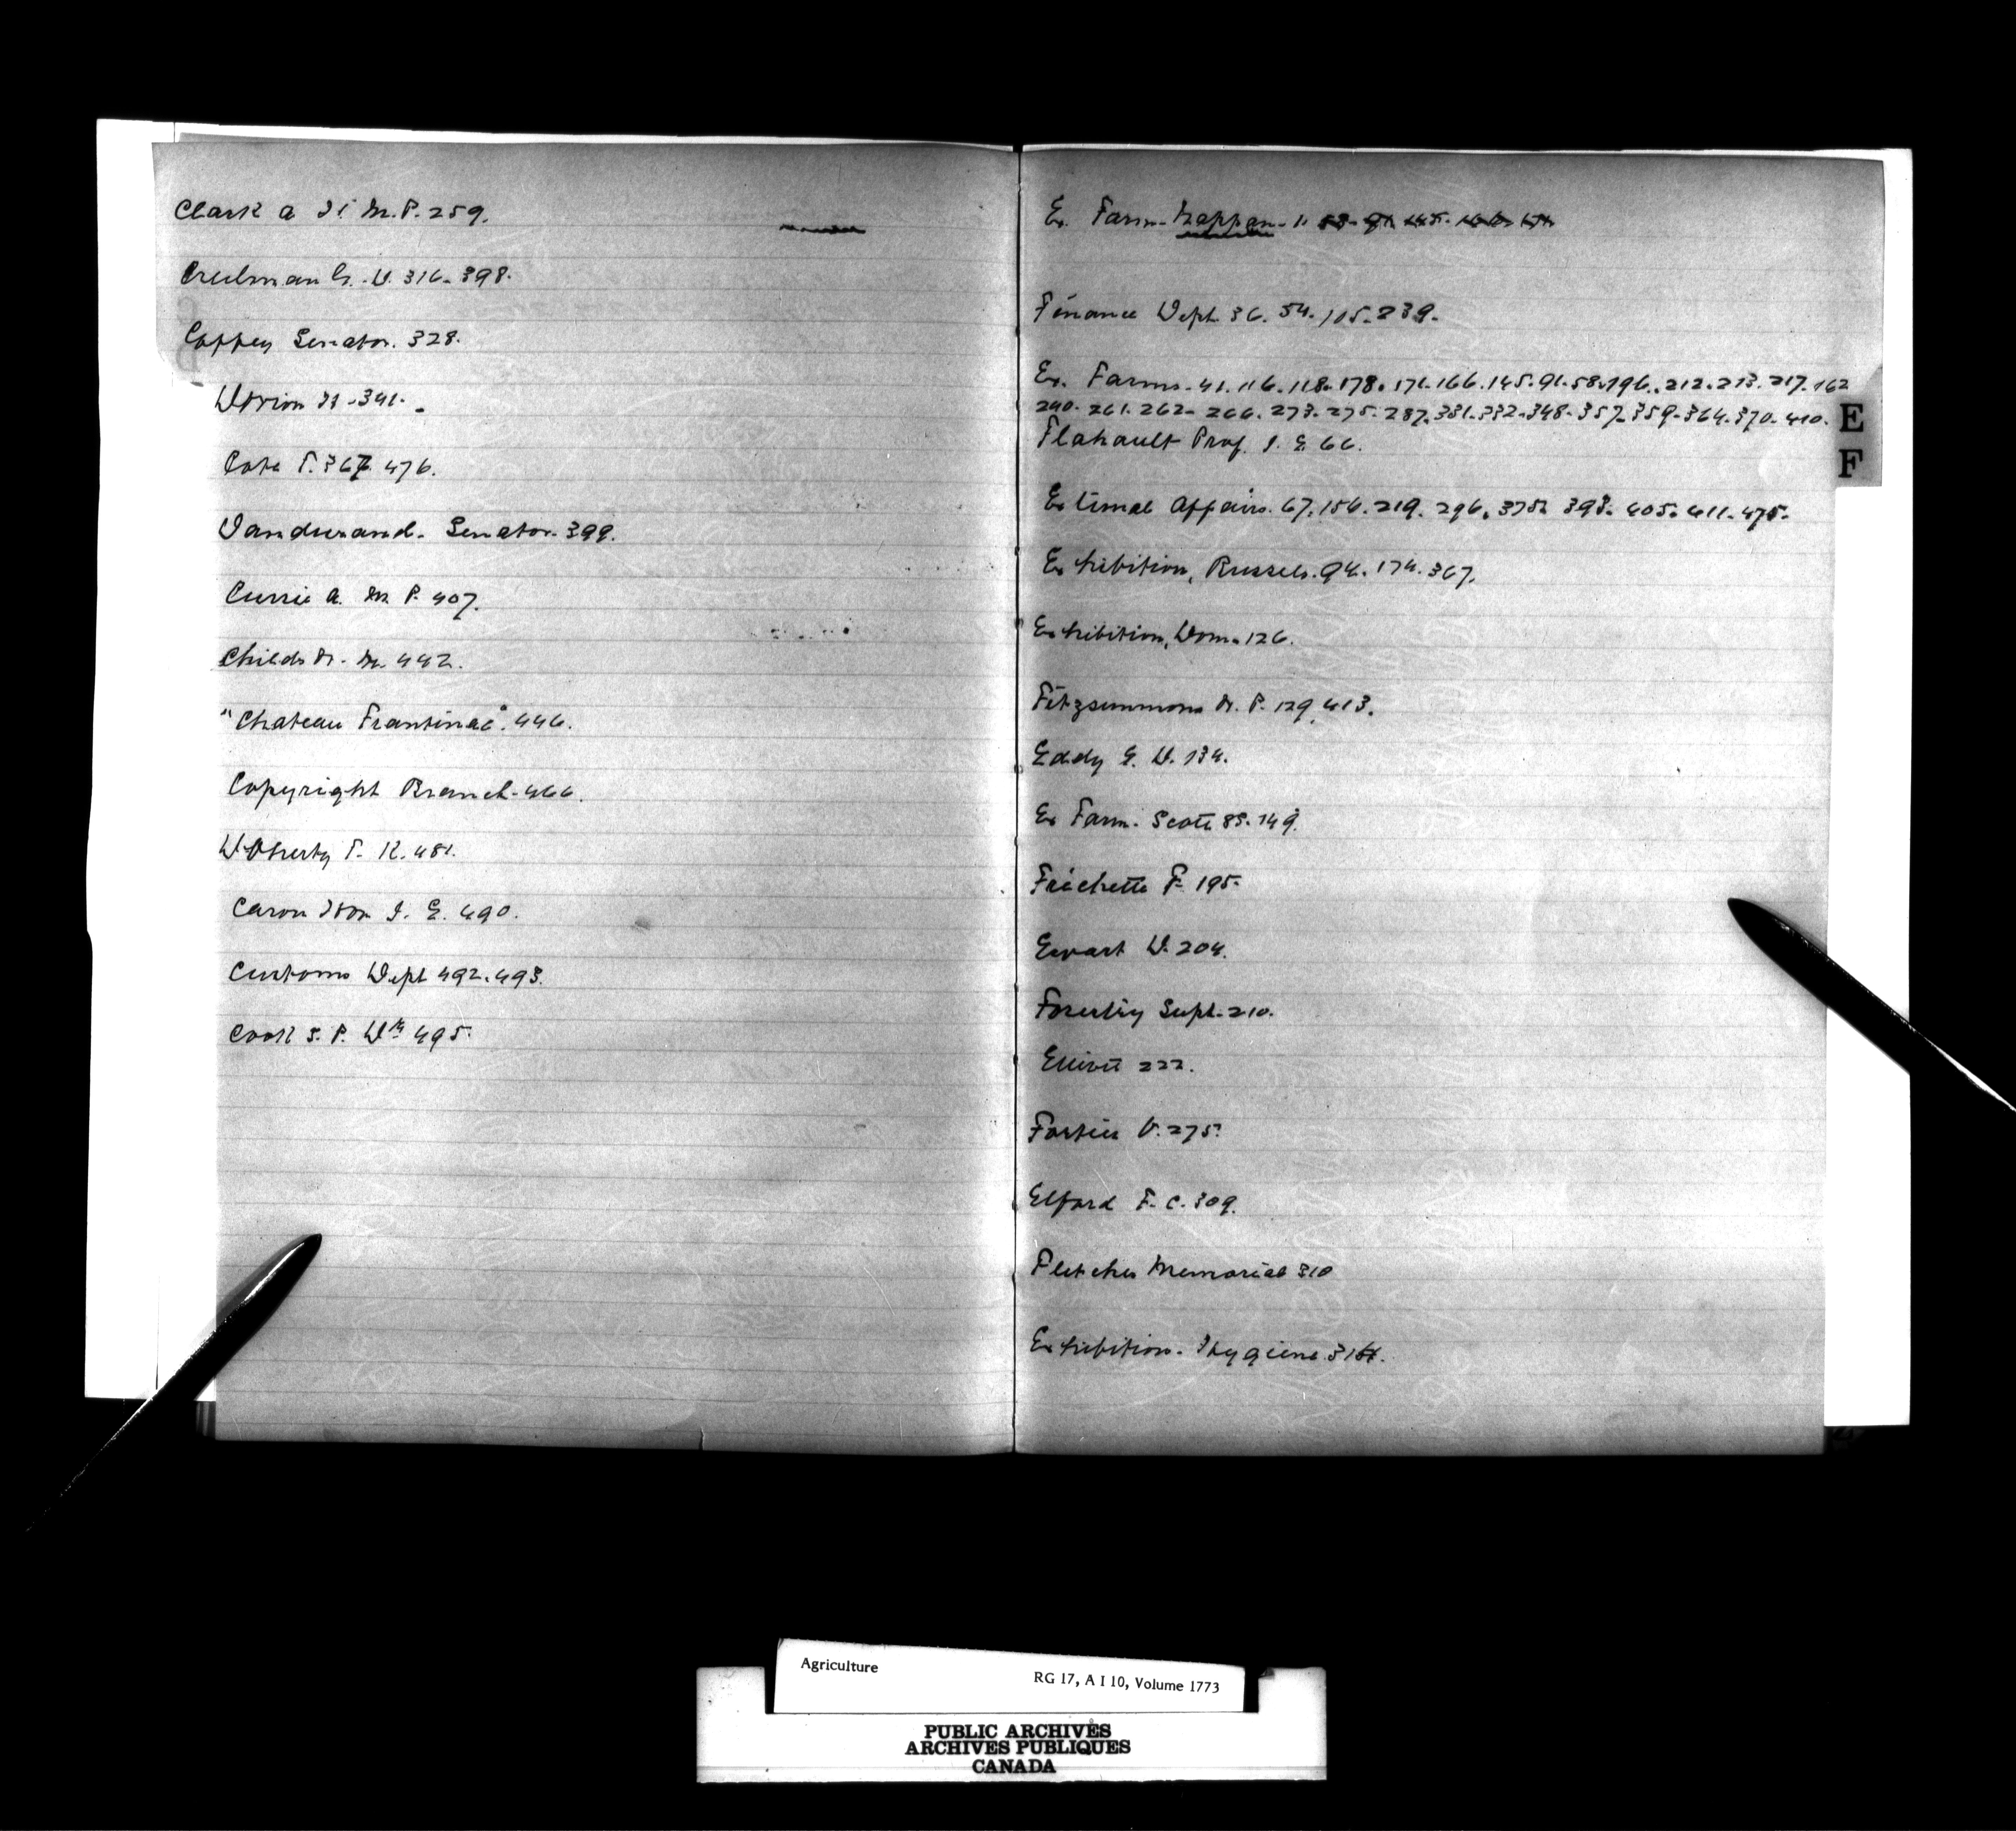 Clark A. H. M.P. 259.
Creelman G. C. 316. 398.
Coffey Senator. 328.
Dorion H. 341.
Cote T. 367. 476.
Dandurand. Senator. 399.
Currie A. M.P. 407.
Childs H. M. 442.
"Chateau Frantinac". 446.
Copyright Branch. 466.
Doherty T. K. 481.
Caron Hon J. E. 490.
Customs Dept 492. 493.
Cook S. P. Dr 495.
Ex. Farm. Nappan. 1. 58. 91. 145. 166. 171.
Finance Dept. 36. 54. 105. 239.
Ex. Farms. 41. 116. 118. 178. 171. 166. 145. 91. 58. 196. 212. 213. 217. 162
240. 261. 262. 266. 273. 275. 287. 331. 332. 348. 357. 359. 364. 370. 410.
Flahault Prof. J. E. 66.
External Affairs. 67. 156. 219. 296. 375. 393. 405. 411. 475.
Exhibition, Brussels. 94. 174. 367.
Exhibition, Dom. 126.
Fitzsimmons Dr. P. 129. 413.
Eddy E. D. 134.
Ex Farm. Scott 85. 149.
Frechette F. 195.
Ewart D. 204.
Forestry Supt. 210.
Elliott 222.
Fortier V. 275.
Elford F. C. 309.
Fletcher Memorial 310
Exhibition. Hygiene
E
F
Agriculture
RG 17, A I 10, Volume 1773
PUBLIC ARCHIVES
ARCHIVES PUBLIQUES
CANADA